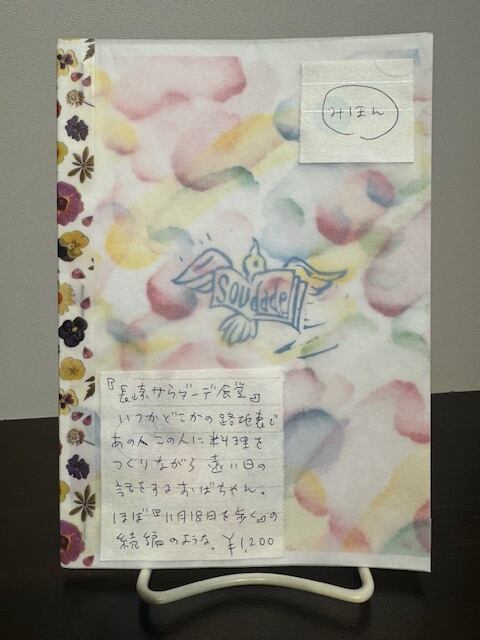 みほん
Soudade
『長崎サウダーデ食堂』
いつかどこかの路地裏で
あの人この人に料理を
つくりながら 遠い日の
話をするおばちゃん。
ほぼ『11月18日を歩く』の
続編のような。 ¥1,200